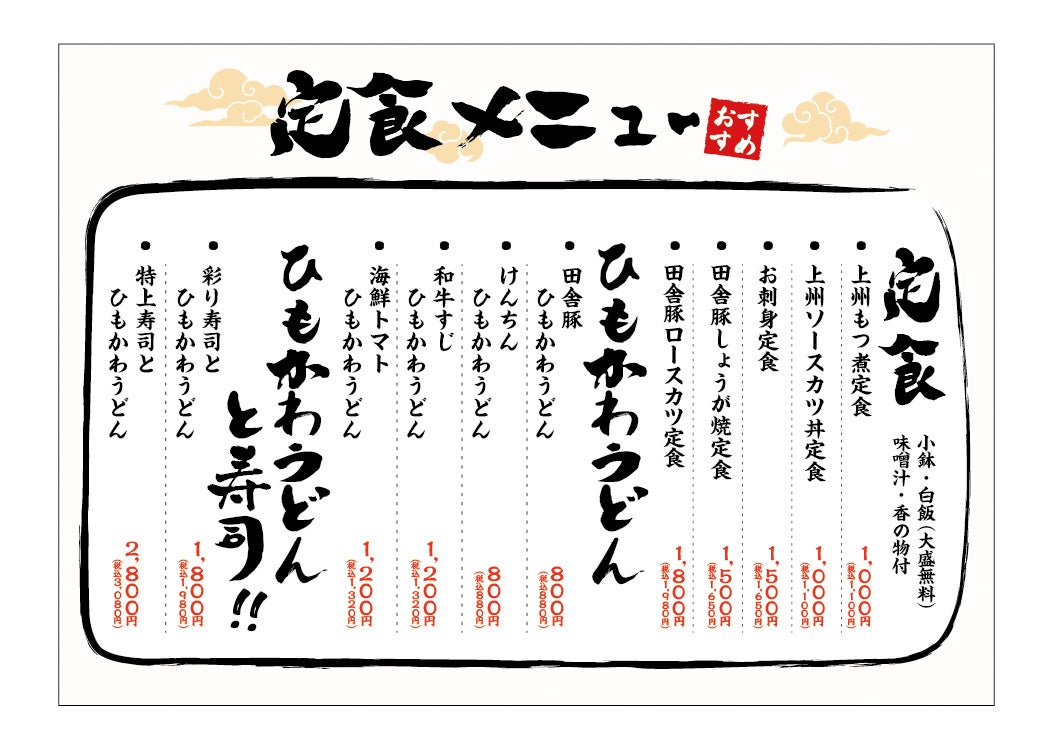 定食メニュー
おすすめ
定食
小鉢・白飯(大盛無料)
味噌汁・香の物付
●上州もつ煮定食
1,000円
(税込1,100円)
●上州ソースカツ丼定食
1,000円
(税込1,100円)
●お刺身定食
1,500円
(税込1,650円)
●田舎豚しょうが焼定食
1,500円
(税込1,650円)
●田舎豚ロースカツ定食
1,800円
(税込1,980円)
ひもかわうどん
●田舎豚
ひもかわうどん
800円
(税込880円)
●けんちん
ひもかわうどん
800円
(税込880円)
●和牛すじ
ひもかわうどん
1,200円
(税込1,320円)
●海鮮トマト
ひもかわうどん
1,200円
(税込1,320円)
ひもかわうどん
と寿司!!
●彩り寿司と
ひもかわうどん
1,800円
(税込1,980円)
●特上寿司と
ひもかわうどん
2,800円
(税込3,080円)